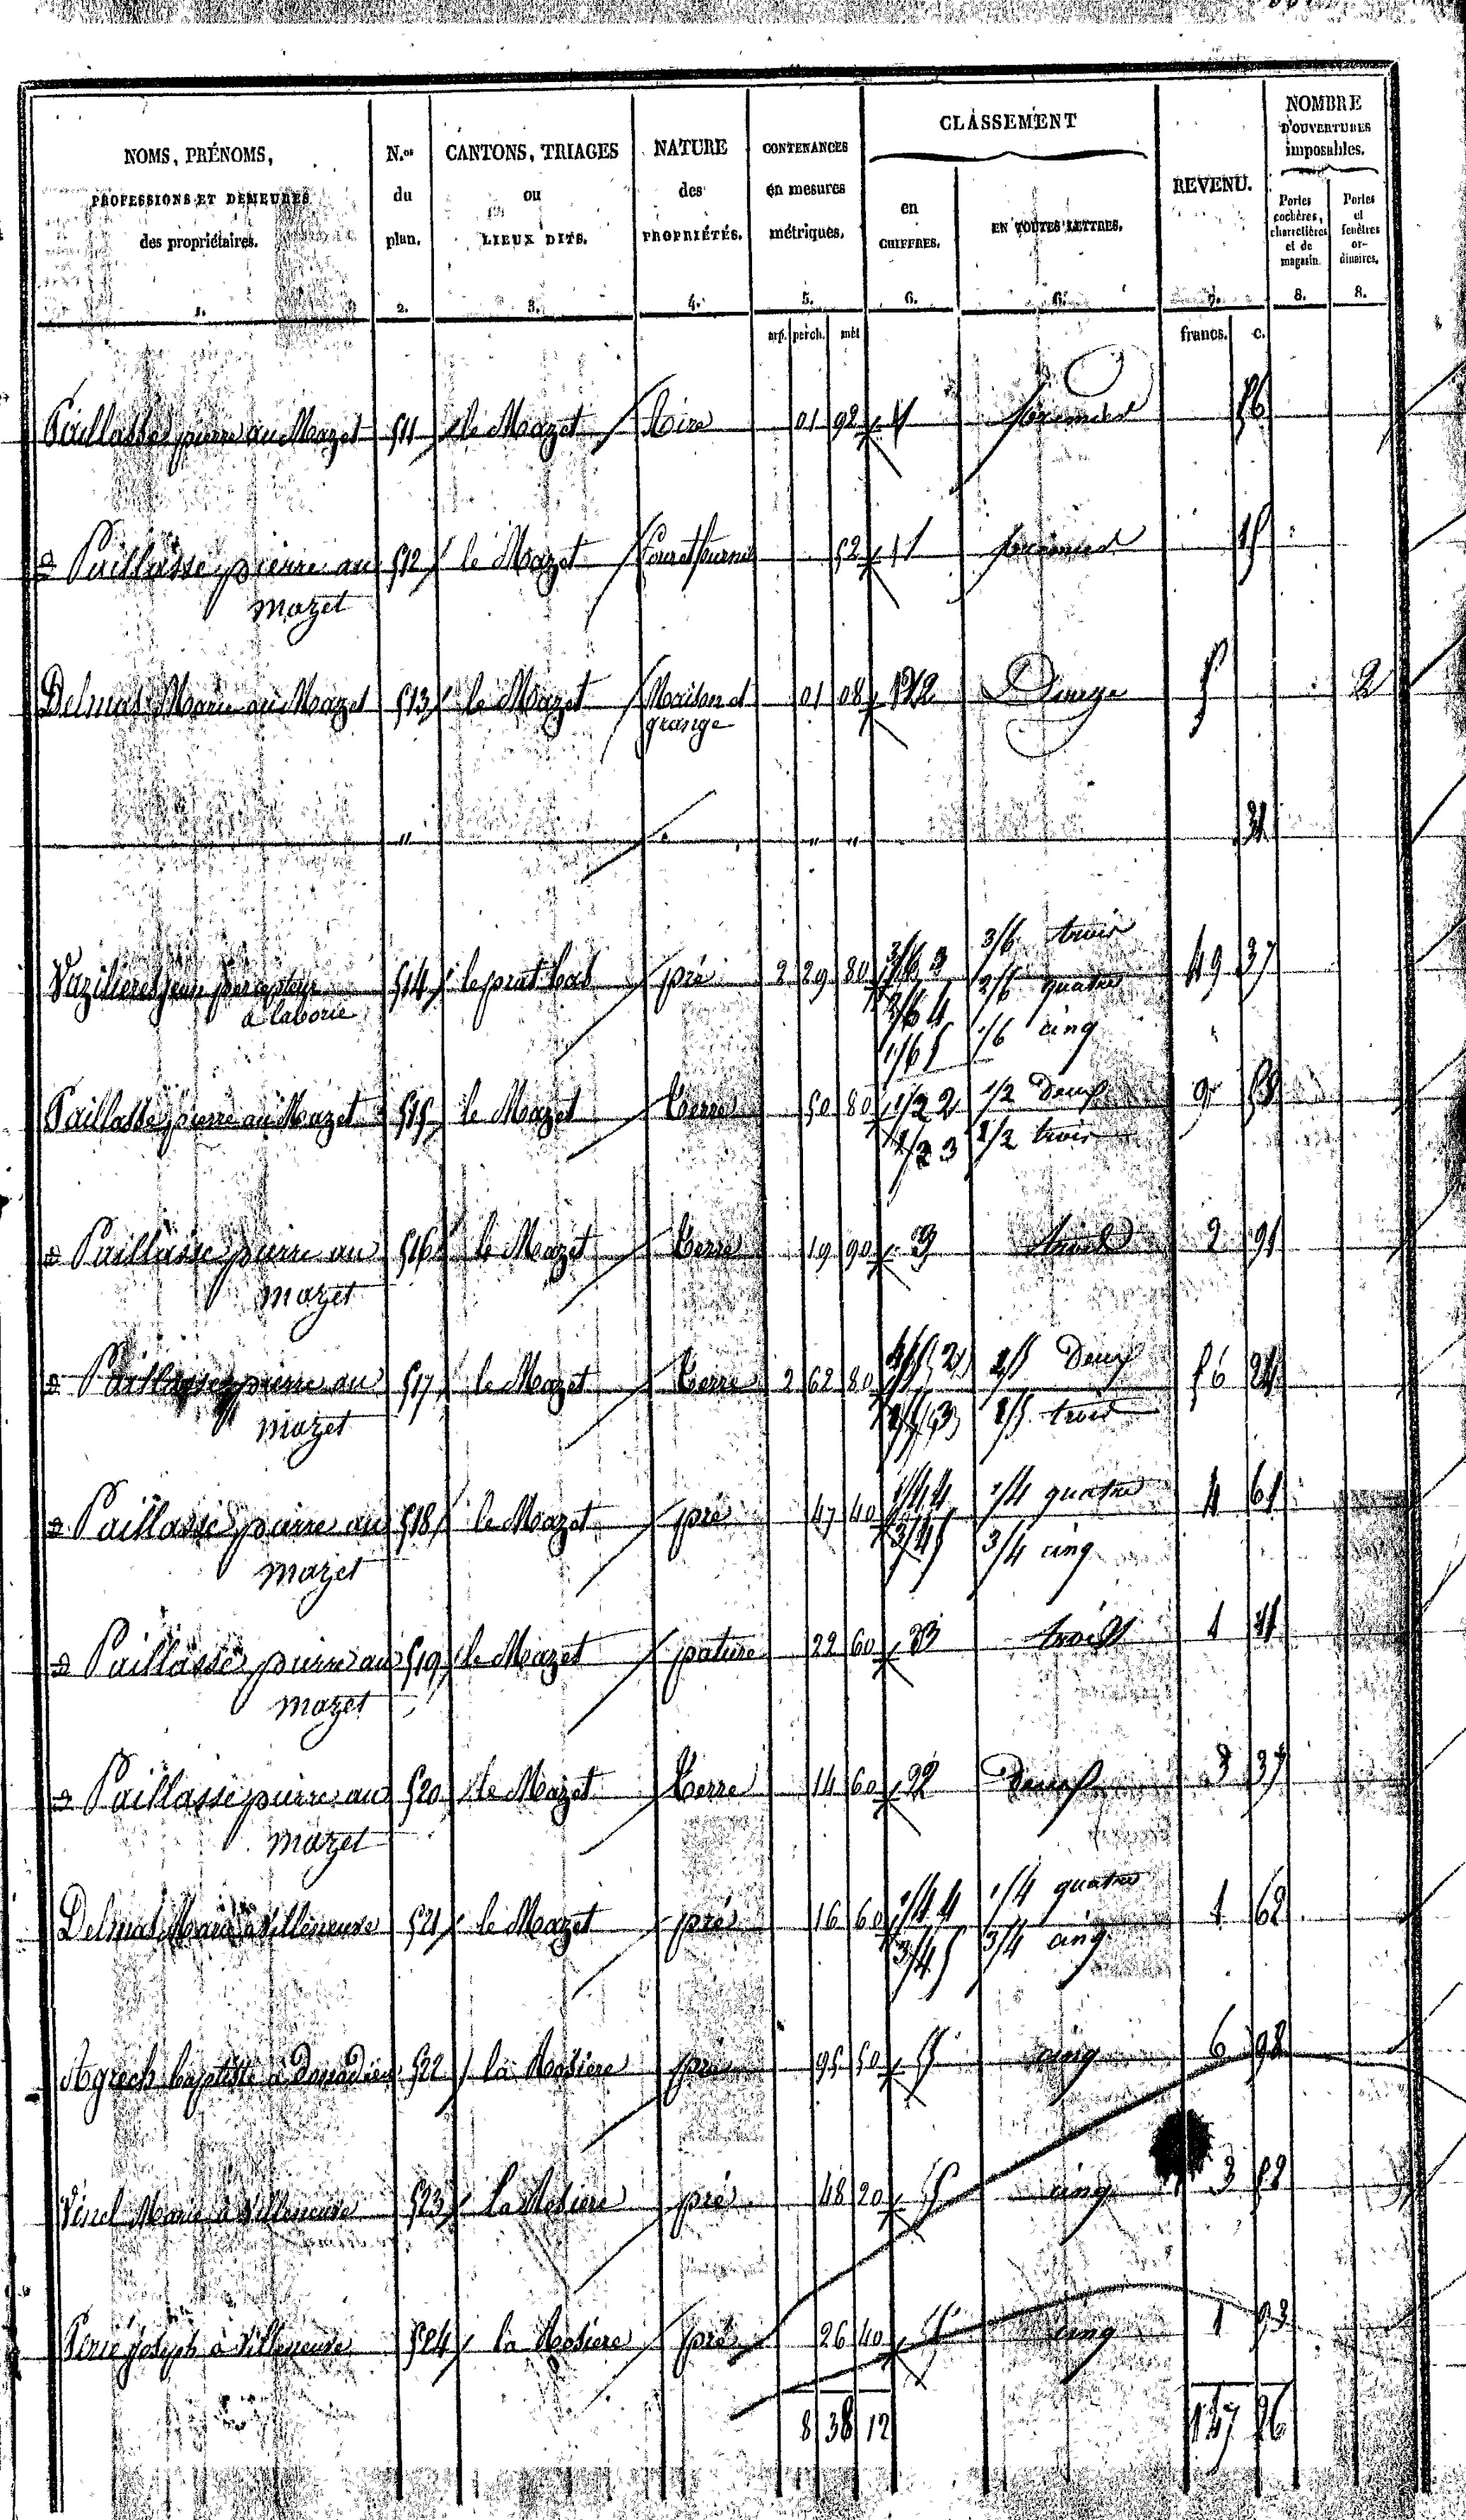 NOMS, PRÉNOMS,
PROFESSIONS ET DEMEURES
des propriétaires.
1.
N.os
du
plan.
2.
CANTONS, TRIAGES
ou
LIEUX DITS.
3.
NATURE
des
PROPRIÉTÉS.
4.
CONTENANCES
en mesures
métriques.
5.
CLASSEMENT
en
CHIFFRES.
6.
EN TOUTES LETTRES.
6.
REVENU.
7.
NOMBRE
D'OUVERTURES
imposables.
Portes
cochères,
charretières
et de
magasin.
8.
Portes
et
fenêtres
or-
dinaires.
8.
arp. perch. mèt francs. c.
Paillasse pierre au Mazet 511 le Mazet Aire 01 92 1 premier 56
D Paillasse pierre au 512 le Mazet Four et fournil 52 1 premier 15
mazet
Delmas Marie au Mazet 513 le Mazet Maison et 01 08 Douze 5 2
grange
" " " 31
3/6 trois
Jean percepteur 514 le prat bas pré 2 29 80 3/6 3 2/6 quatre 49 37
a laborie 2/6 4 1/6 cinq
1/6 5
Paillasse pierre au Mazet 515 le Mazet Terre 50 80 1/2 2 1/2 Deux 9
1/2 3 1/2 trois
D Paillasse pierre au 516 le Mazet Terre 19 90 3 trois 2 91
mazet
D Paillasse pierre au 517 le Mazet Terre 2 62 80 Deux 56 24
mazet trois
D Paillasse pierre au 518 le Mazet pré 47 40 1/4 4 1/4 quatre 4 61
mazet 3/4 5 3/4 cinq
D Paillasse pierre au 519 le Mazet pature 22 60 3 trois 1
mazet
D Paillasse pierre au 520 le Mazet Terre 14 60 2 Deux 3 37
mazet
Delmas Marie à Villeneuve 521 le Mazet pré 16 60 1/4 4 1/4 quatre 1 62
3/4 5 3/4 cinq
Agrech baptiste à Donadieu 522 la Rosiere pré 95 50 5 cinq 6 98
Marie à Villeneuve 523 la Rosiere pré 48 20 5 cinq 3 52
joseph à Villeneuve 524 la Rosiere pré 26 40 5 cinq 1 93
8 38 12 147 26